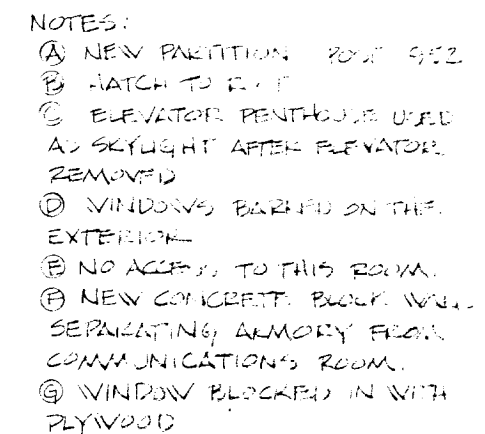 NOTES:
(A) NEW PARTITION POST 1952
(B) HATCH TO
(C) ELEVATOR PENTHOUSE USED
AS SKYLIGHT AFTER ELEVATOR
REMOVED
(D) WINDOWS BARRED ON THE
EXTERIOR
(E) NO ACCESS TO THIS ROOM.
(F) NEW CONCRETE BLOCK WALL
SEPARATING ARMORY FROM
COMMUNICATIONS ROOM.
(G) WINDOW BLOCKED IN WITH
PLYWOOD